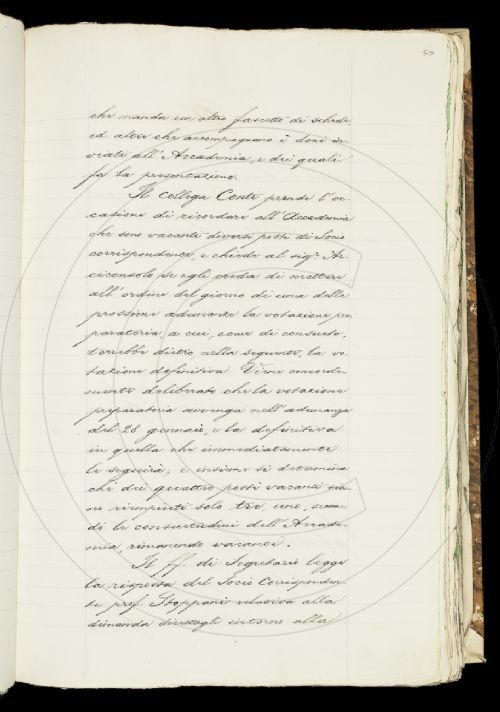 che manda un altro fascetto di schede
ed altre che accompagnano i doni in-
viati all'Accademia, e dei quali
fa la presentazione.
Il collega Conti prende l'oc-
casione di ricordare all'Accademia
che sono vacanti diversi posti di Socio
corrispondente, e chiede al sigr. Ar-
ciconsolo se egli creda di mettere
all'ordine del giorno di una delle
prossime adunanze la votazione pre-
paratoria, a cui, come di consueto,
terrebbe dietro nella seguente, la vo-
tazione definitiva. Viene concorde-
mente deliberato che la votazione
preparatoria avvenga nell'adunanza
del 28 gennaio, e la definitiva
in quella che immediatamente
le seguirà; e insieme si determina
che dei quattro posti vacanti sia-
no riempiuti solo tre, uno, secon-
do le consuetudini dell'Accade-
mia, rimanendo vacante.
Il ff. di Segretario legge
la risposta del Socio Corrisponden-
te prof. Stoppani relativa alla
dimanda direttagli intorno alla